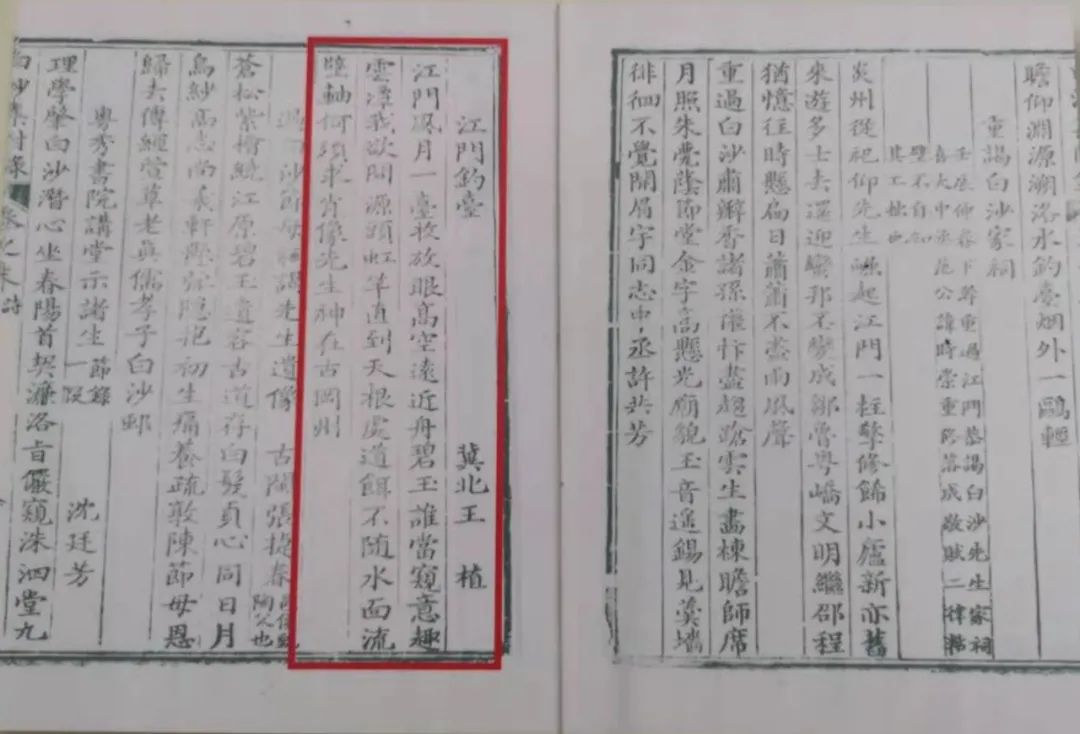 瞻仰淵源溯洛水釣臺烟外一鷗輕
重謁白沙家祠
壬辰仲春下澣重過江門恭謁白沙先生家祠
喜大中丞范公諱時崇重修落成敬賦二律鐫
壁不自知
其工拙也
炎州從祀仰先生崛起江門一柱擎修飾小廬新亦舊
來遊多士去還迎蠻邦丕變成鄒魯粤嶠文明繼邵程
猶憶往時懸扁日蕭蕭不盡雨風聲
重過白沙肅瓣香諸孫僬忭盡趨蹌雲生畵棟瞻師席
月照朱甍蔭節堂金字高懸光廟貌玉音遥錫見羹墻
徘徊不覺關扃字同志中丞許共芳
江門釣臺
冀北王 植
江門風月一臺收放眼高空遠近舟碧玉誰當窺意趣
雲潭我欲問源頭虹竿直到天根處道餌不随水面流
壁軸何須求肖像先生神在古岡州
謁白沙節母祠謁先生遺像 古閩張捷春
陶父也
蒼松紫檜繞江原碧玉遺容古道存白髮貞心同日月
烏紗高志尚羲軒懸弧隱抱初生痛養疏敢陳節母恩
歸去傳經萱草老真儒孝子白沙邨
粤秀書院講堂示諸生 節錄一段 沈廷芳
理學肇白沙潛心坐春陽首契濂洛旨儼窺洙泗堂九
白沙集附錄 卷之末 詩